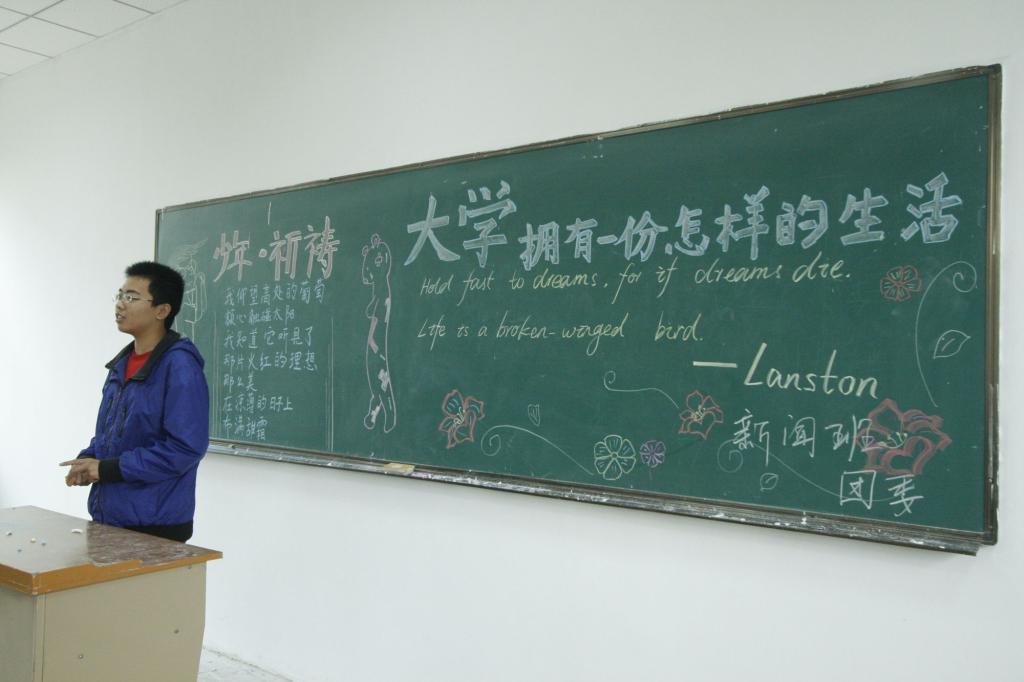 少年·祈祷
我仰望高处的葡萄
颗心触碰太阳
我知道它听见了
那片火红的理想
那么美
在凉薄的日子上
布满甜霜
大学拥有一份怎样的生活
Hold fast to dreams, for if dreams die.
Life is a broken-winged bird.
—Lanston
新闻班
团委